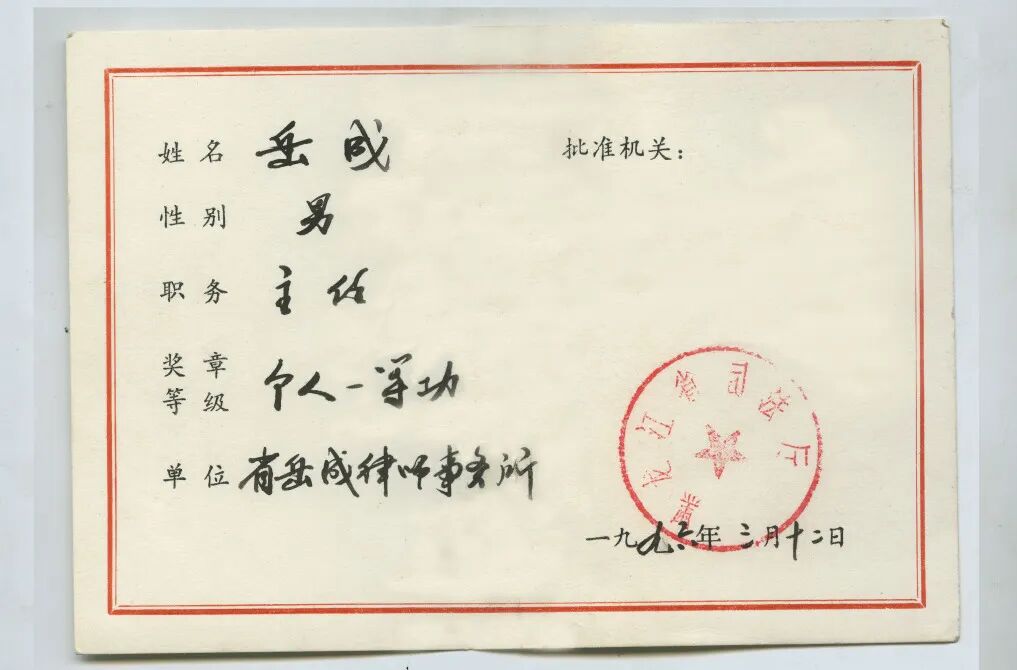 姓名 岳成
批准机关：
性别 男
职务 主任
奖章等级 个人一等功
单位 省岳成律师事务所
黑龙江省司法厅
一九九六年三月十二日